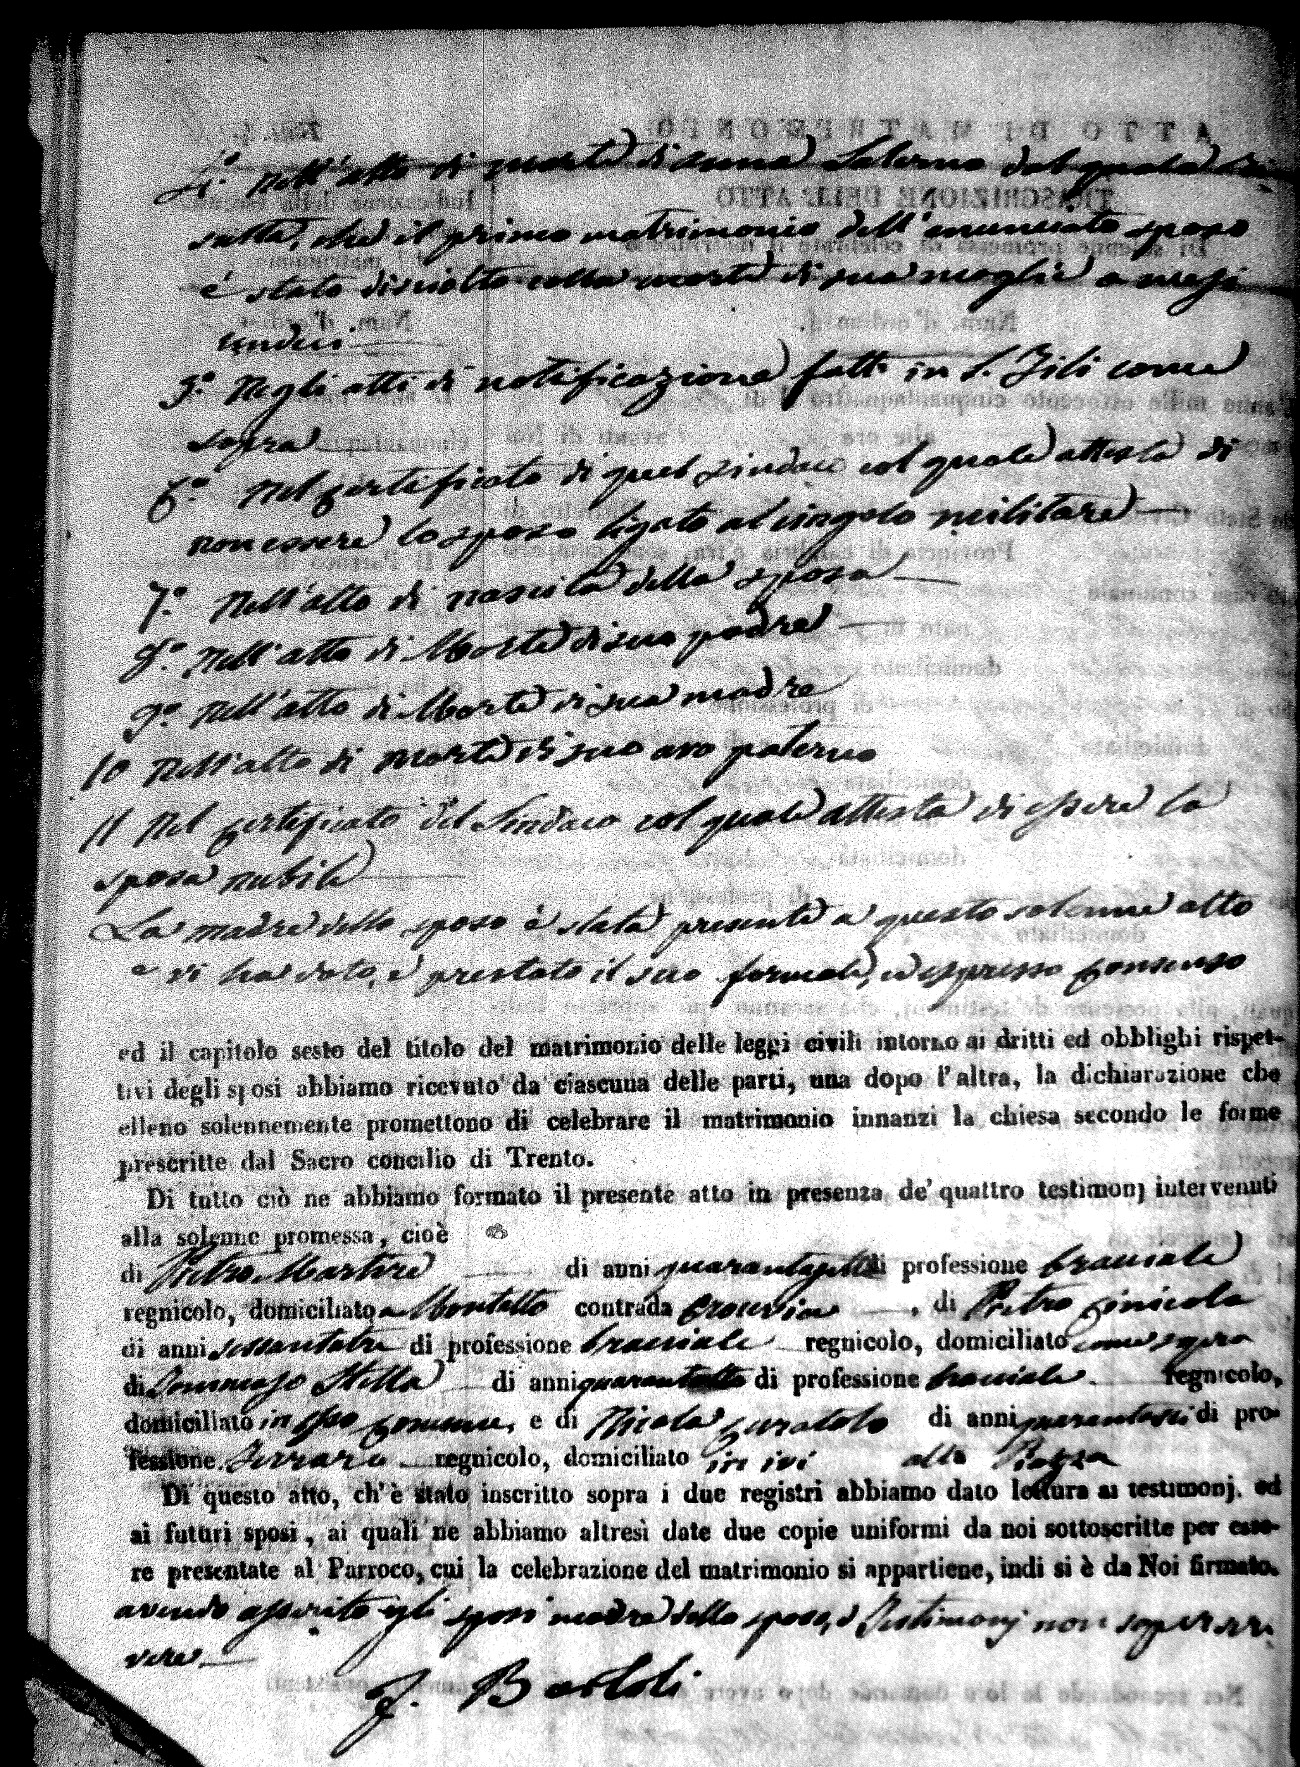 4.° Nell'atto di morte di Anna Salerno dal quale ri
sulta, che il primo matrimonio dell'enunciato sposo
è stato disciolto colla morte di sua moglie a mesi
undici
5.° Negli atti di notificazione fatti in S. Sili come
sopra
6.° Nel certificato di quel sindaco col quale attesta di
non essere lo sposo ligato al cingolo militare
7.° Nell'atto di nascita della sposa
8.° Nell'atto di Morte di suo padre
9.° Nell'atto di Morte di sua madre
10 Nell'atto di morte di suo avo paterno
11 Nel certificato del Sindaco col quale attesta di essere la
sposa nubile
La madre dello sposo è stata presente a questo solenne atto
e vi ha dato, e prestato il suo formale, ed espresso consenso
ed il capitolo sesto del titolo del matrimonio delle leggi civili intorno ai dritti ed obblighi rispet-
tivi degli sposi abbiamo ricevuto da ciascuna delle parti, una dopo l'altra, la dichiarazione che
elleno solennemente promettono di celebrare il matrimonio innanzi la chiesa secondo le forme
prescritte dal Sacro concilio di Trento.
Di tutto ciò ne abbiamo formato il presente atto in presenza de' quattro testimonj intervenuti
alla solenne promessa, cioè
di Pietro Martire di anni quarantasette di professione bracciale
regnicolo, domiciliato a Montalto contrada , di Pietro Cinicola
di anni sessantatre di professione bracciale regnicolo, domiciliato come sopra
di Tommaso Stella di anni quarantotto di professione bracciale regnicolo,
domiciliato in esso Comune, e di Nicola Curatolo di anni quarantasei di pro-
fessione Ferraro regnicolo, domiciliato in ivi alla Piazza
Di questo atto, ch'è stato inscritto sopra i due registri abbiamo dato lettura ai testimonj. ed
ai futuri sposi, ai quali ne abbiamo altresì date due copie uniformi da noi sottoscritte per esse-
re presentate al Parroco, cui la celebrazione del matrimonio si appartiene, indi si è da Noi firmato.
avendo asserito gli sposi madre dello sposo, e Testimonj non saper scri
vere
F. Bartoli